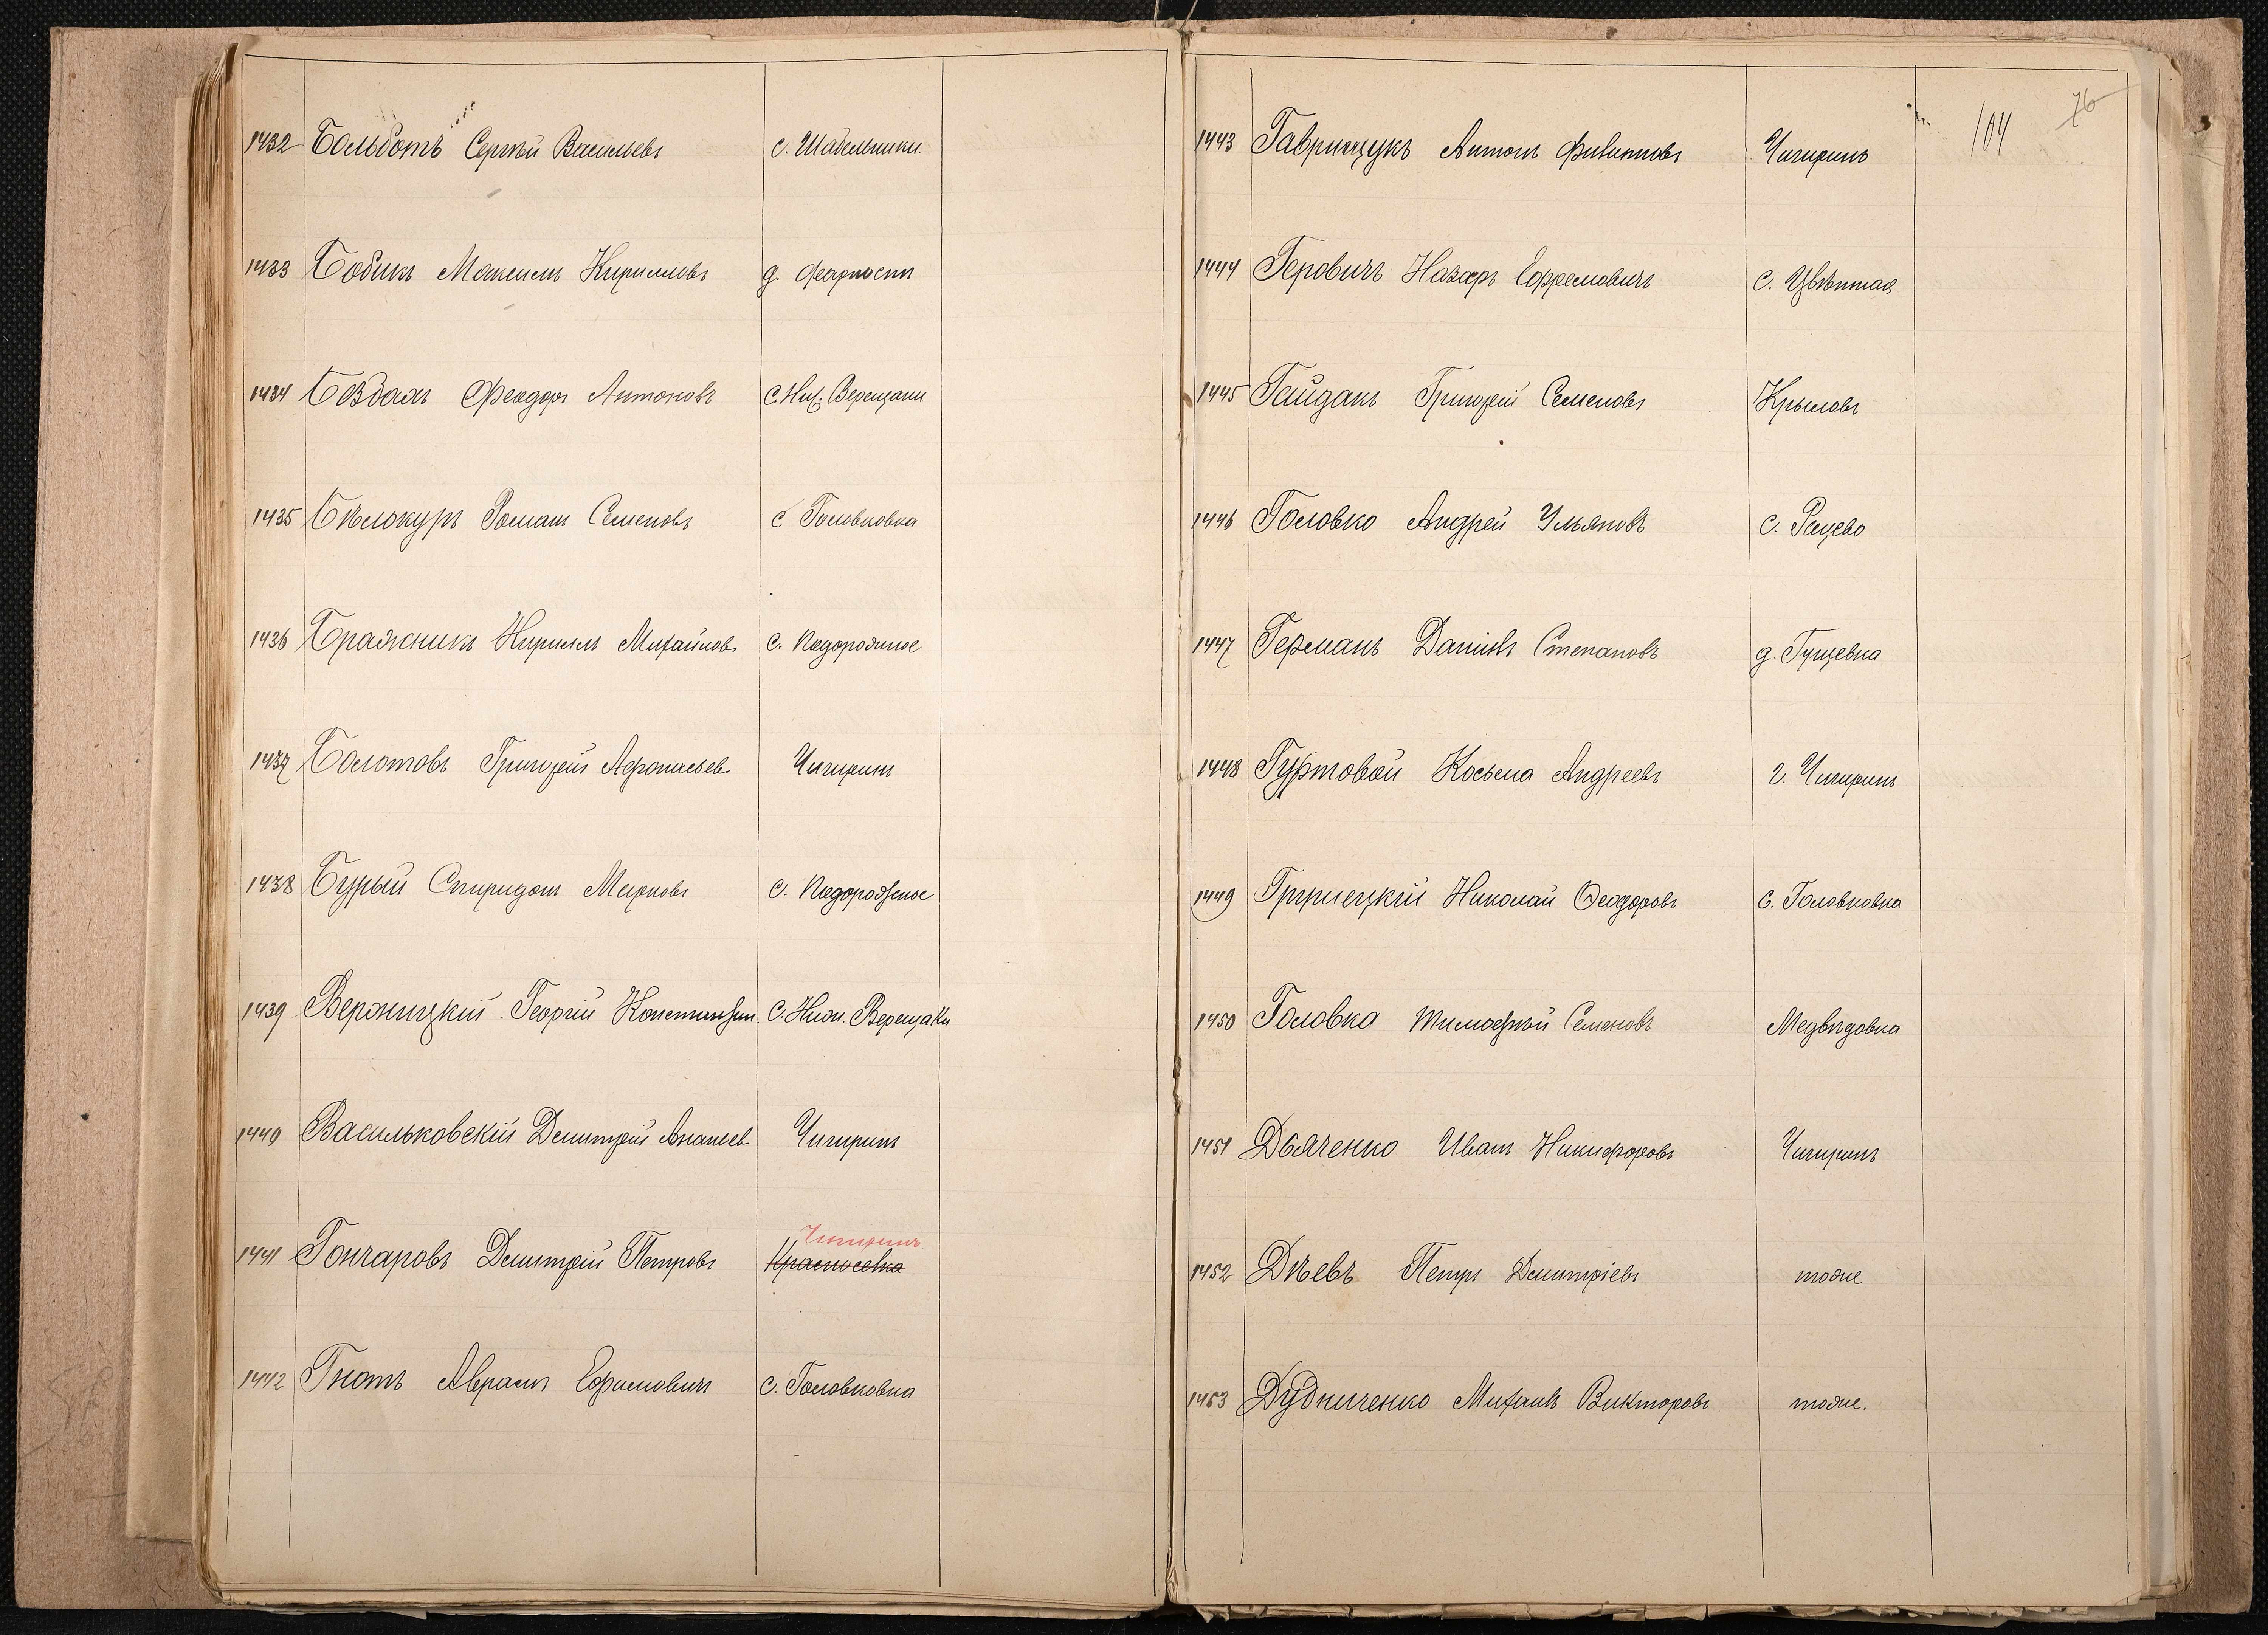 1432 Бальботъ Сергѣй Васильевъ с. Шабельники
1433 Бобикъ Максимъ Кирилловъ д.
1434 Боздамъ Феодоръ Антоновъ с. Ниж. Верещаки
1435 Бѣлокуръ Романъ Семеновъ с. Головковка
1436 Бражникъ Кириллъ Михайловъ с. Подорожное
1437 Болотовъ Григорій Афонасьев Чигиринъ
1438 Бурый Спиридонъ Марковъ с. Подорожное
1439 Вержицкій Георгій Константин. с. Ниж. Верещаки
1440 Васильковскій Дмитрій Ананьев Чигиринъ
Чигиринъ
1441 Гончаровъ Дмитрій Петровъ Красносевка
1442 Гнотъ Аврамъ Ефимовичъ с. Головковка
104 76
1443 Гаврищукъ Антонъ Филиповъ Чигиринъ
1444 Геровичъ Назаръ Ефремовичъ с. Цвѣтная
1445 Гайдакъ Григорій Семеновъ Крыловъ
1446 Головко Андрей Ульяновъ с. Рацево
1447 Германъ Даніилъ Степановъ д. Гущевка
1448 Гуртовой Косьма Андреевъ г. Чигиринъ
1449 Николай Ѳеодоровъ с. Головковка
1450 Головка Тимофѣй Семеновъ Медвѣдовка
1451 Дьяченко Иванъ Никифоровъ Чигиринъ
1452 Дѣевъ Петръ Дмитріевъ тоже
1453 Дудниченко Михаилъ Викторовъ тоже.